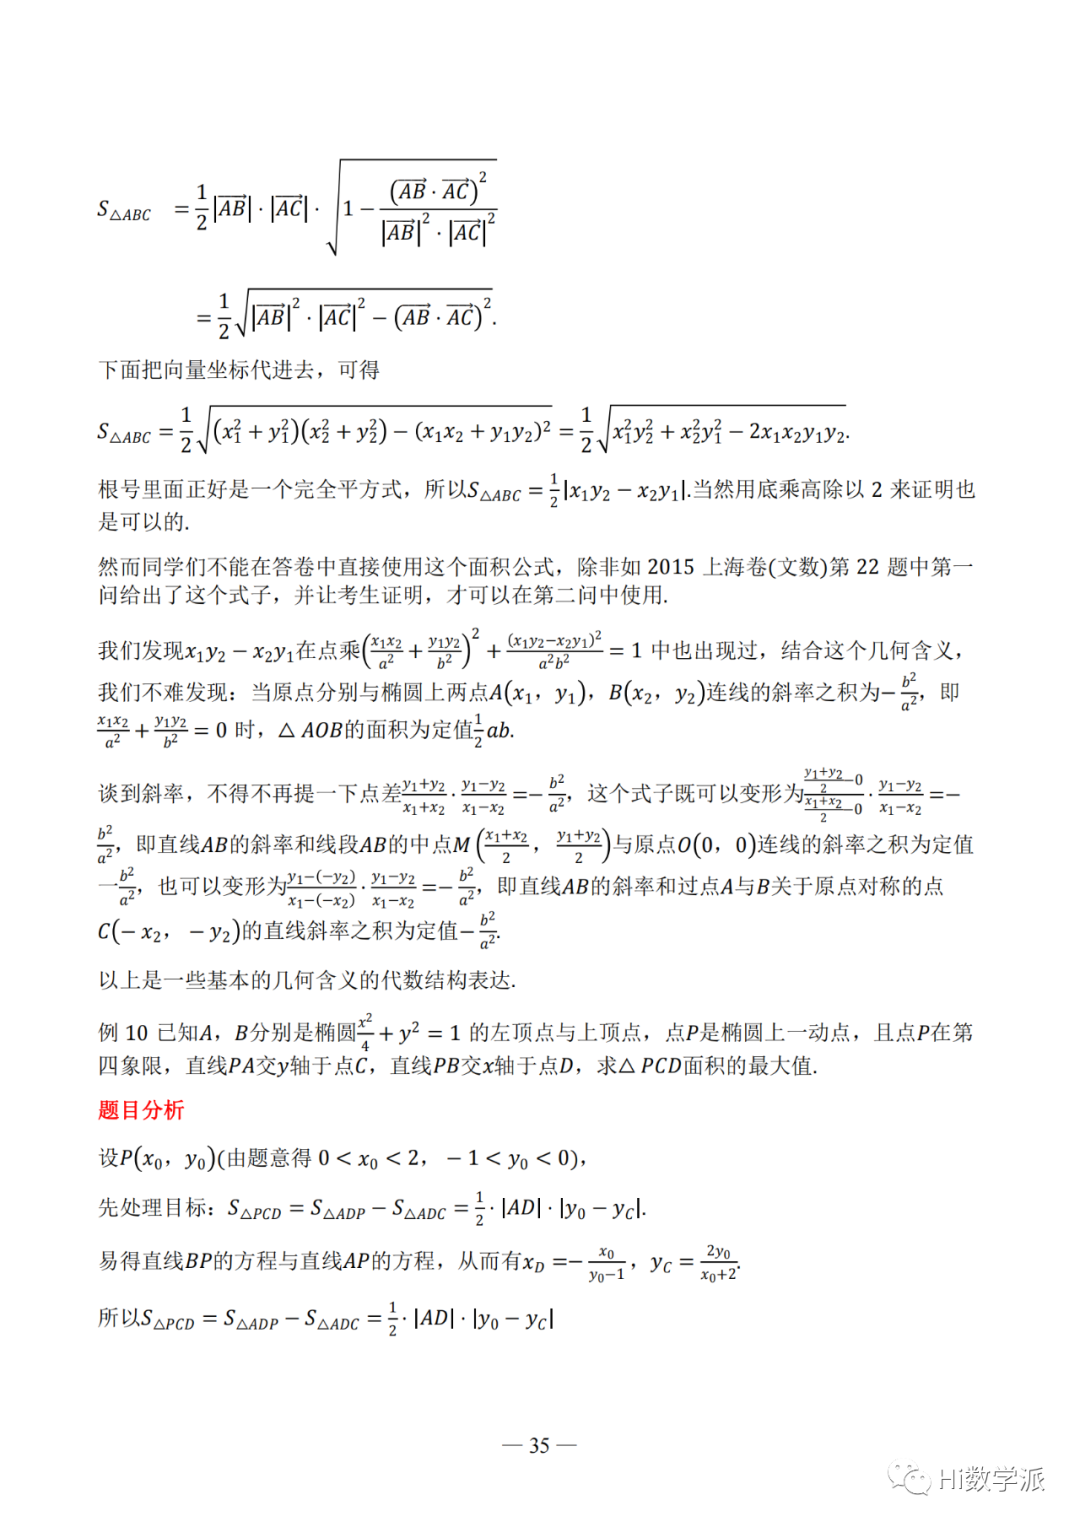 S△ABC = 1/2|AB→|·|AC→|·√(1 − (AB→·AC→)²/(|AB→|²·|AC→|²))
= 1/2√(|AB→|²·|AC→|² − (AB→·AC→)²).
下面把向量坐标代进去，可得
S△ABC = 1/2√((x₁² + y₁²)(x₂² + y₂²) − (x₁x₂ + y₁y₂)²) = 1/2√(x₁²y₂² + x₂²y₁² − 2x₁x₂y₁y₂).
根号里面正好是一个完全平方式，所以S△ABC = 1/2|x₁y₂ − x₂y₁|.当然用底乘高除以 2 来证明也
是可以的.
然而同学们不能在答卷中直接使用这个面积公式，除非如 2015 上海卷(文数)第 22 题中第一
问给出了这个式子，并让考生证明，才可以在第二问中使用.
我们发现x₁y₂ − x₂y₁在点乘(x₁x₂/a² + y₁y₂/b²)² + (x₁y₂−x₂y₁)²/(a²b²) = 1 中也出现过，结合这个几何含义，
我们不难发现：当原点分别与椭圆上两点A(x₁，y₁)，B(x₂，y₂)连线的斜率之积为−b²/a²，即
x₁x₂/a² + y₁y₂/b² = 0 时，△ AOB的面积为定值1/2 ab.
谈到斜率，不得不再提一下点差(y₁+y₂)/(x₁+x₂)·(y₁−y₂)/(x₁−x₂) =− b²/a²，这个式子既可以变形为((y₁+y₂)/2−0)/((x₁+x₂)/2−0)·(y₁−y₂)/(x₁−x₂) =−
b²/a²，即直线AB的斜率和线段AB的中点M((x₁+x₂)/2，(y₁+y₂)/2)与原点O(0，0)连线的斜率之积为定值
—b²/a²，也可以变形为(y₁−(−y₂))/(x₁−(−x₂))·(y₁−y₂)/(x₁−x₂) =− b²/a²，即直线AB的斜率和过点A与B关于原点对称的点
C(− x₂，− y₂)的直线斜率之积为定值−b²/a².
以上是一些基本的几何含义的代数结构表达.
例 10 已知A，B分别是椭圆x²/4 + y² = 1 的左顶点与上顶点，点P是椭圆上一动点，且点P在第
四象限，直线PA交y轴于点C，直线PB交x轴于点D，求△ PCD面积的最大值.
题目分析
设P(x₀，y₀)(由题意得 0 < x₀ < 2， − 1 < y₀ < 0)，
先处理目标：S△PCD = S△ADP − S△ADC = 1/2·|AD|·|y₀ − y_C|.
易得直线BP的方程与直线AP的方程，从而有x_D =− x₀/(y₀−1)，y_C = 2y₀/(x₀+2).
所以S△PCD = S△ADP − S△ADC = 1/2·|AD|·|y₀ − y_C|
— 35 —
Hi数学派